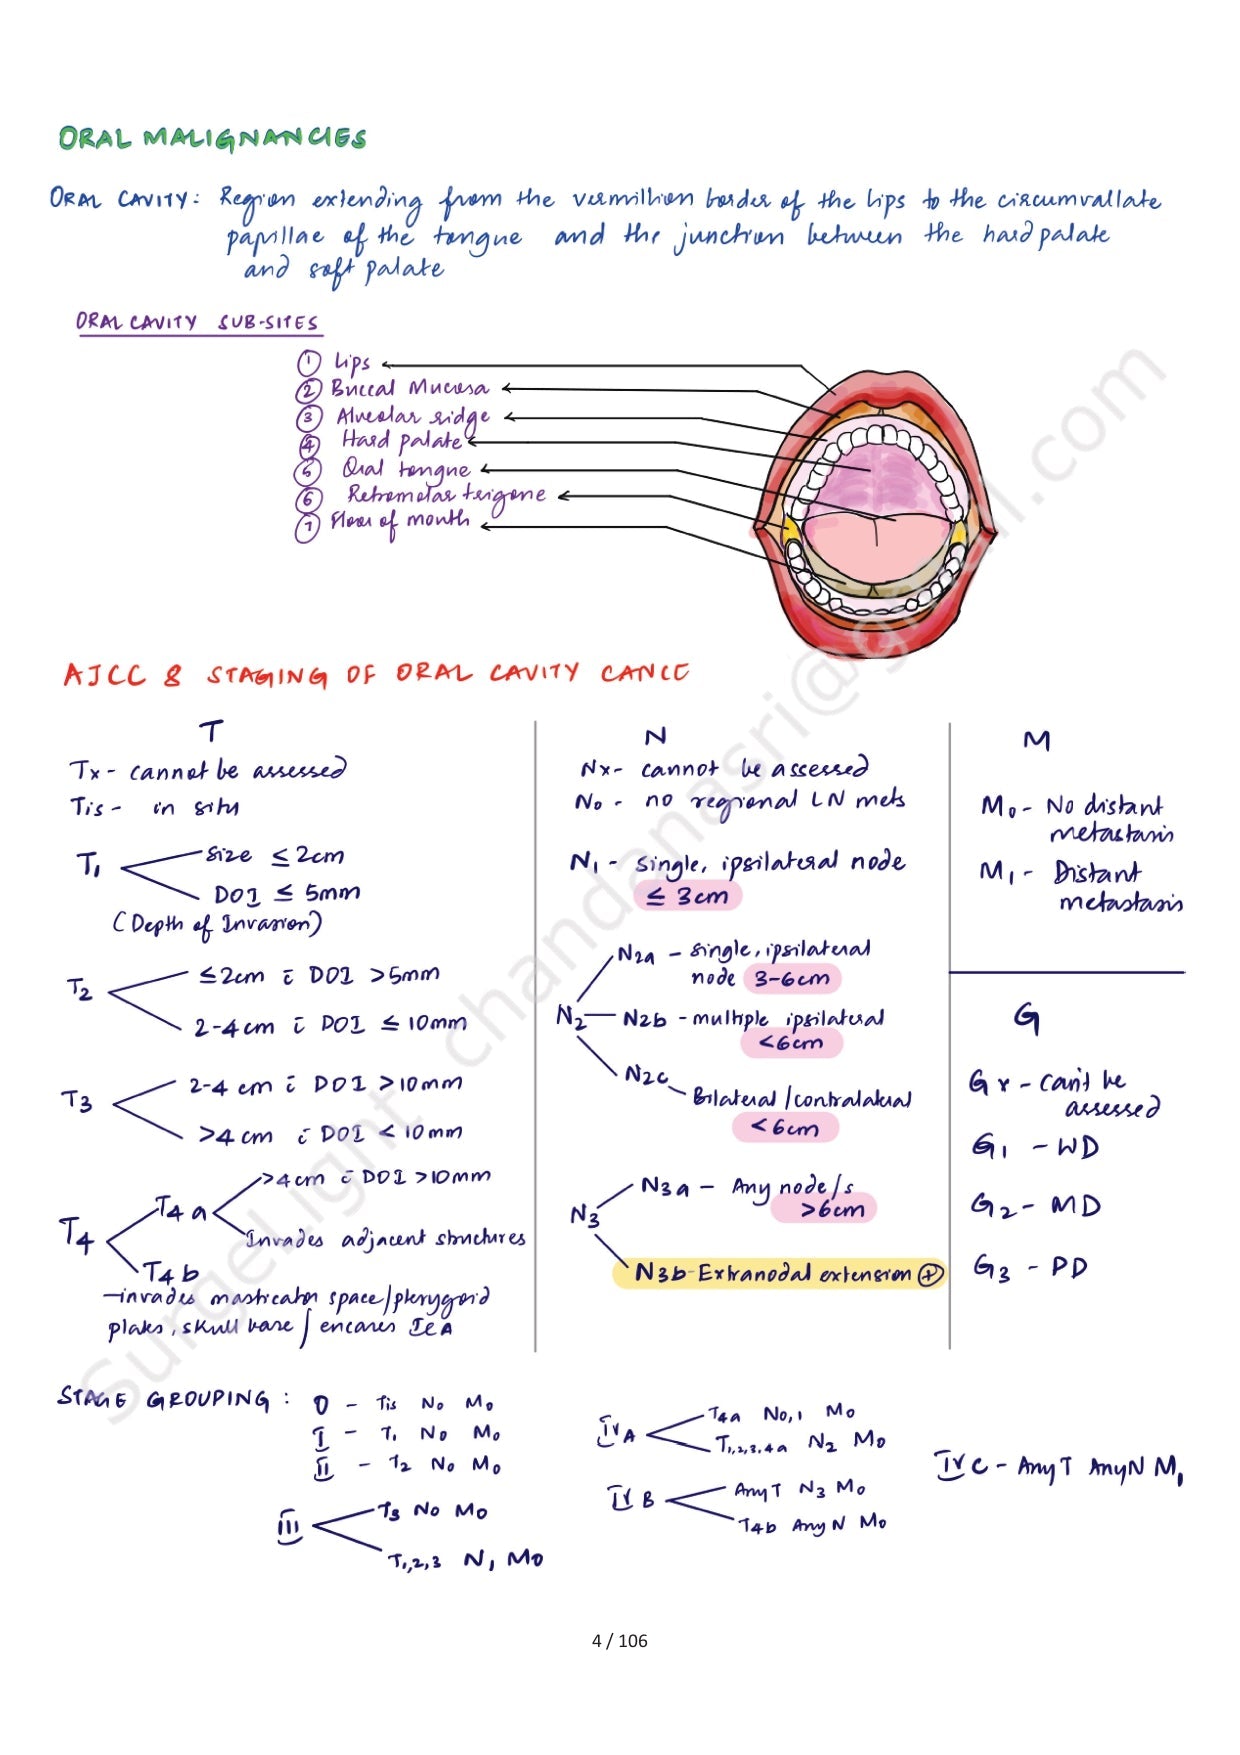 ORAL MALIGNANCIES
ORAL CAVITY: Region extending from the vermillion border of the lips to the circumvallate
papillae of the tongue and the junction between the hard palate
and soft palate
ORAL CAVITY SUB-SITES
① Lips
② Buccal Mucosa
③ Alveolar ridge
④ Hard palate
⑤ Oral tongue
⑥ Retromolar trigone
⑦ Floor of mouth
AJCC 8 STAGING OF ORAL CAVITY CANCE
T
Tx - cannot be assessed
Tis - in situ
T1
size ≤ 2cm
DOI ≤ 5mm
(Depth of Invasion)
T2
≤2cm c̄ DOI >5mm
2-4cm c̄ DOI ≤ 10mm
T3
2-4 cm c̄ DOI >10mm
>4cm c̄ DOI < 10mm
T4
T4a
>4cm c̄ DOI >10mm
Invades adjacent structures
T4b
-invades masticator space/pterygoid
plates, skull base/ encares ICA
N
Nx- cannot be assessed
N0 - no regional LN mets
N1 - single, ipsilateral node
≤ 3cm
N2
N2a - single, ipsilateral
node 3-6cm
N2b - multiple ipsilateral
<6cm
N2c
Bilateral/contralateral
<6cm
N3
N3a - Any node/s
>6cm
N3b-Extranodal extension ⊕
M
M0 - No distant
metastasis
M1 - Distant
metastasis
G
Gx - can't be
assessed
G1 - WD
G2 - MD
G3 - PD
STAGE GROUPING:
0 - Tis N0 M0
I - T1 N0 M0
II - T2 N0 M0
III
T3 N0 M0
T1,2,3 N1 M0
IVA
T4a N0,1 M0
T1,2,3,4a N2 M0
IVB
Any T N3 M0
T4b Any N M0
IVC - Any T Any N M1
4 / 106
SurgeLight chandanasri@gmail.com